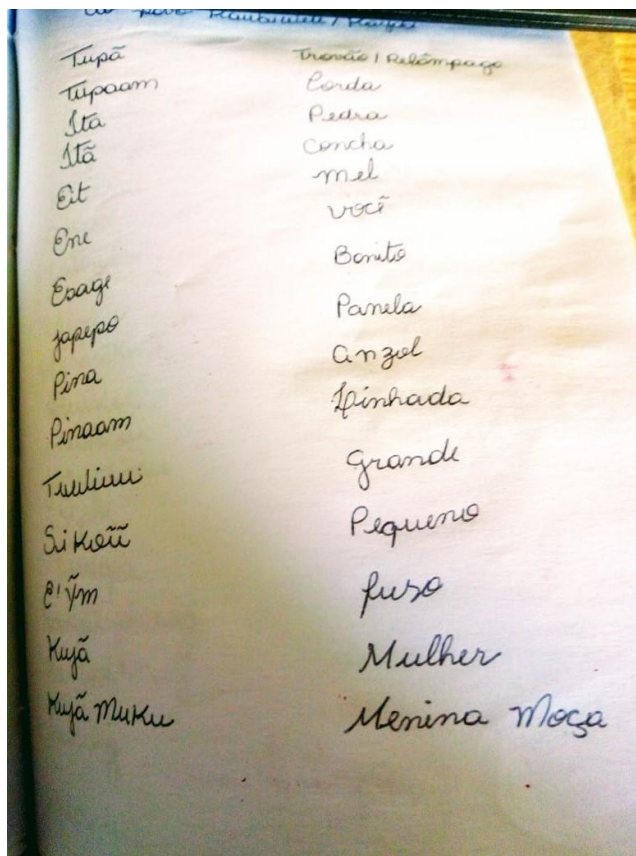 Povo
Tupã Trovão / Relâmpago
Tupaam Corda
Ita Pedra
Itã Concha
Eit mel
Ene você
Eoage Bonito
japepo Panela
Pina anzol
Pinaam Linhada
Grande
Sikoĩĩ Pequeno
e'ỹm fuso
Kujã Mulher
Kujã muku Menina Moça